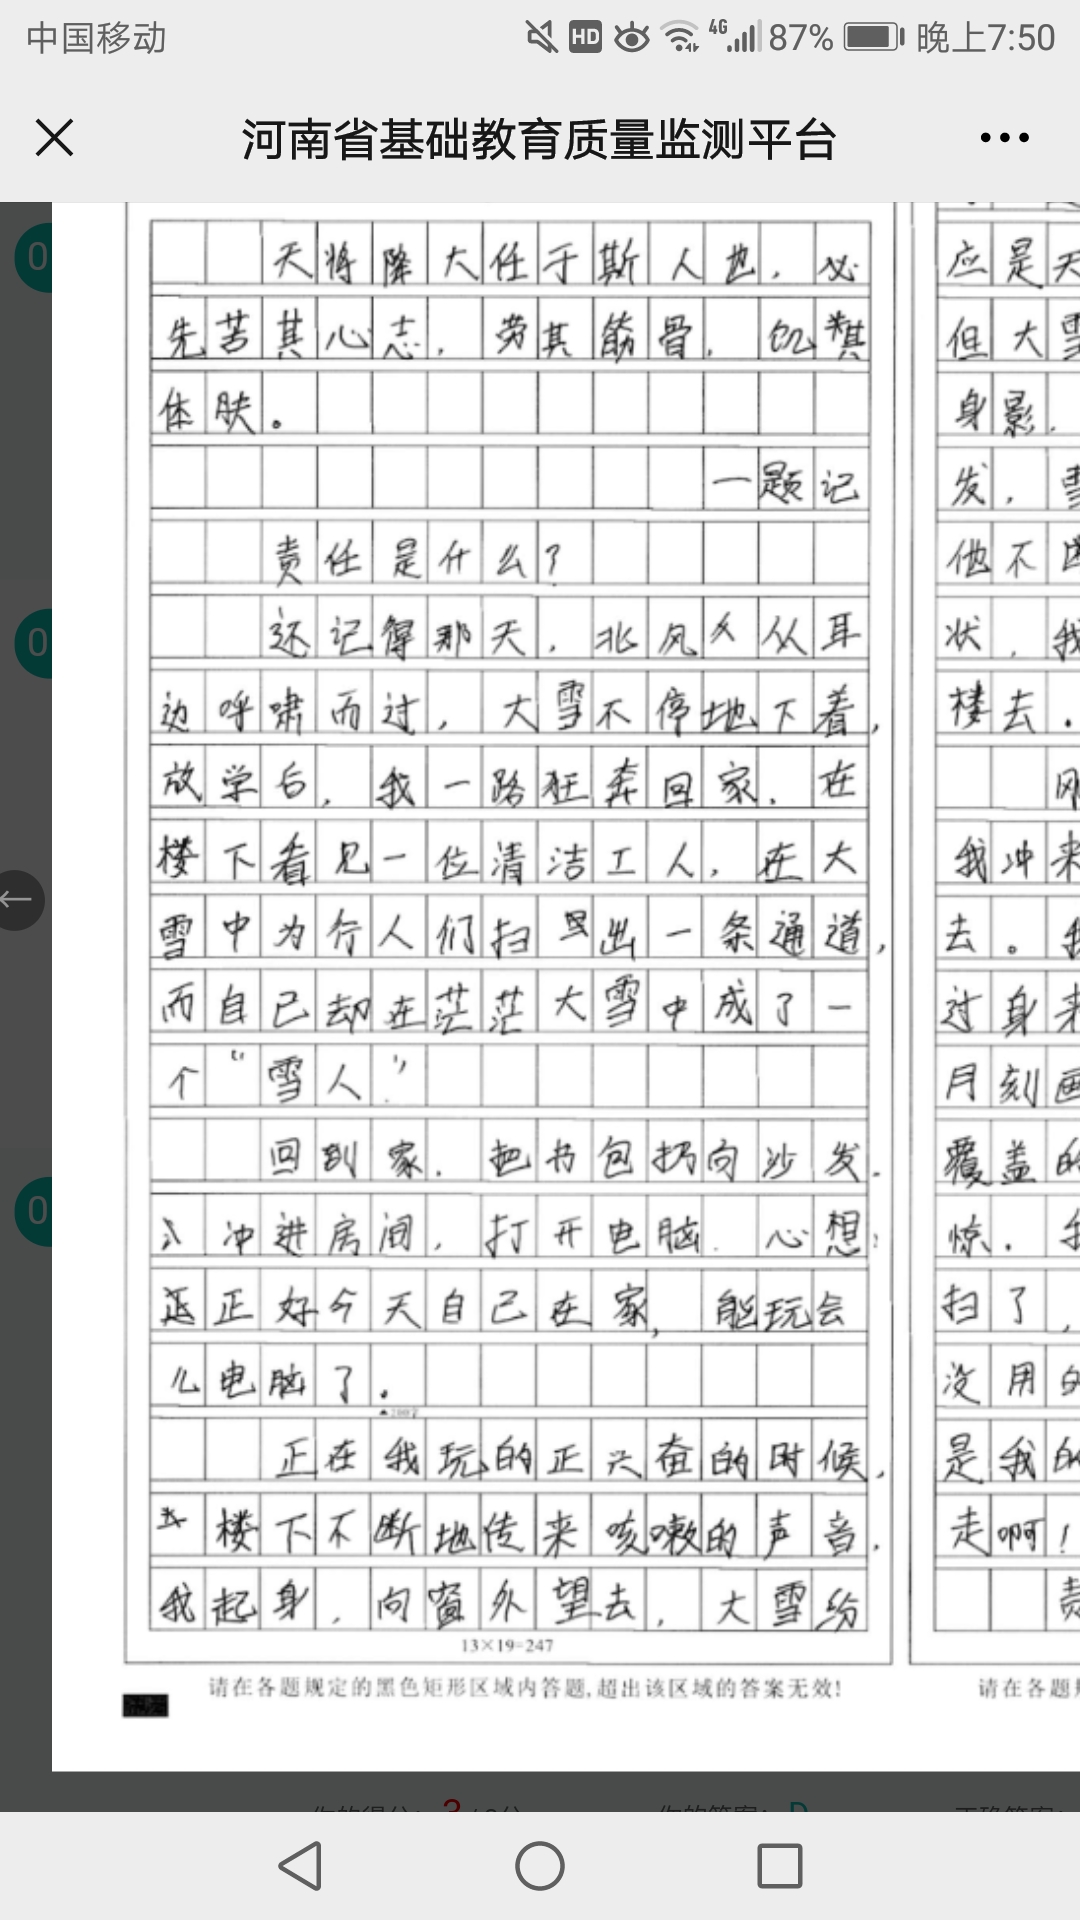 中国移动 HD 4G 87% 晚上7:50
河南省基础教育质量监测平台
天将降大任于斯人也，必
先苦其心志，劳其筋骨，饥其
体肤。
一题记
责任是什么？
还记得那天，北风从耳
边呼啸而过，大雪不停地下着，
放学后，我一路狂奔回家．在
楼下看见一位清洁工人，在大
雪中为行人们扫出一条通道，
而自己却在茫茫大雪中成了一
个“雪人”
回到家．把书包扔向沙发．
冲进房间，打开电脑．心想：
正好今天自己在家，能玩会
儿电脑了．
▲200字
正在我玩的正兴奋的时候，
楼下不断地传来咳嗽的声音．
我起身，向窗外望去，大雪纷
13×19=247
请在各题规定的黑色矩形区域内答题,超出该区域的答案无效!
应是天
但大雪
身影．
发，雪
他不
状，我
楼去．
刚
我冲来
去。我
过身来
月刻画
覆盖的
惊．我
扫了，
没用的
是我的
走啊！
责
请在各题
0
0
0